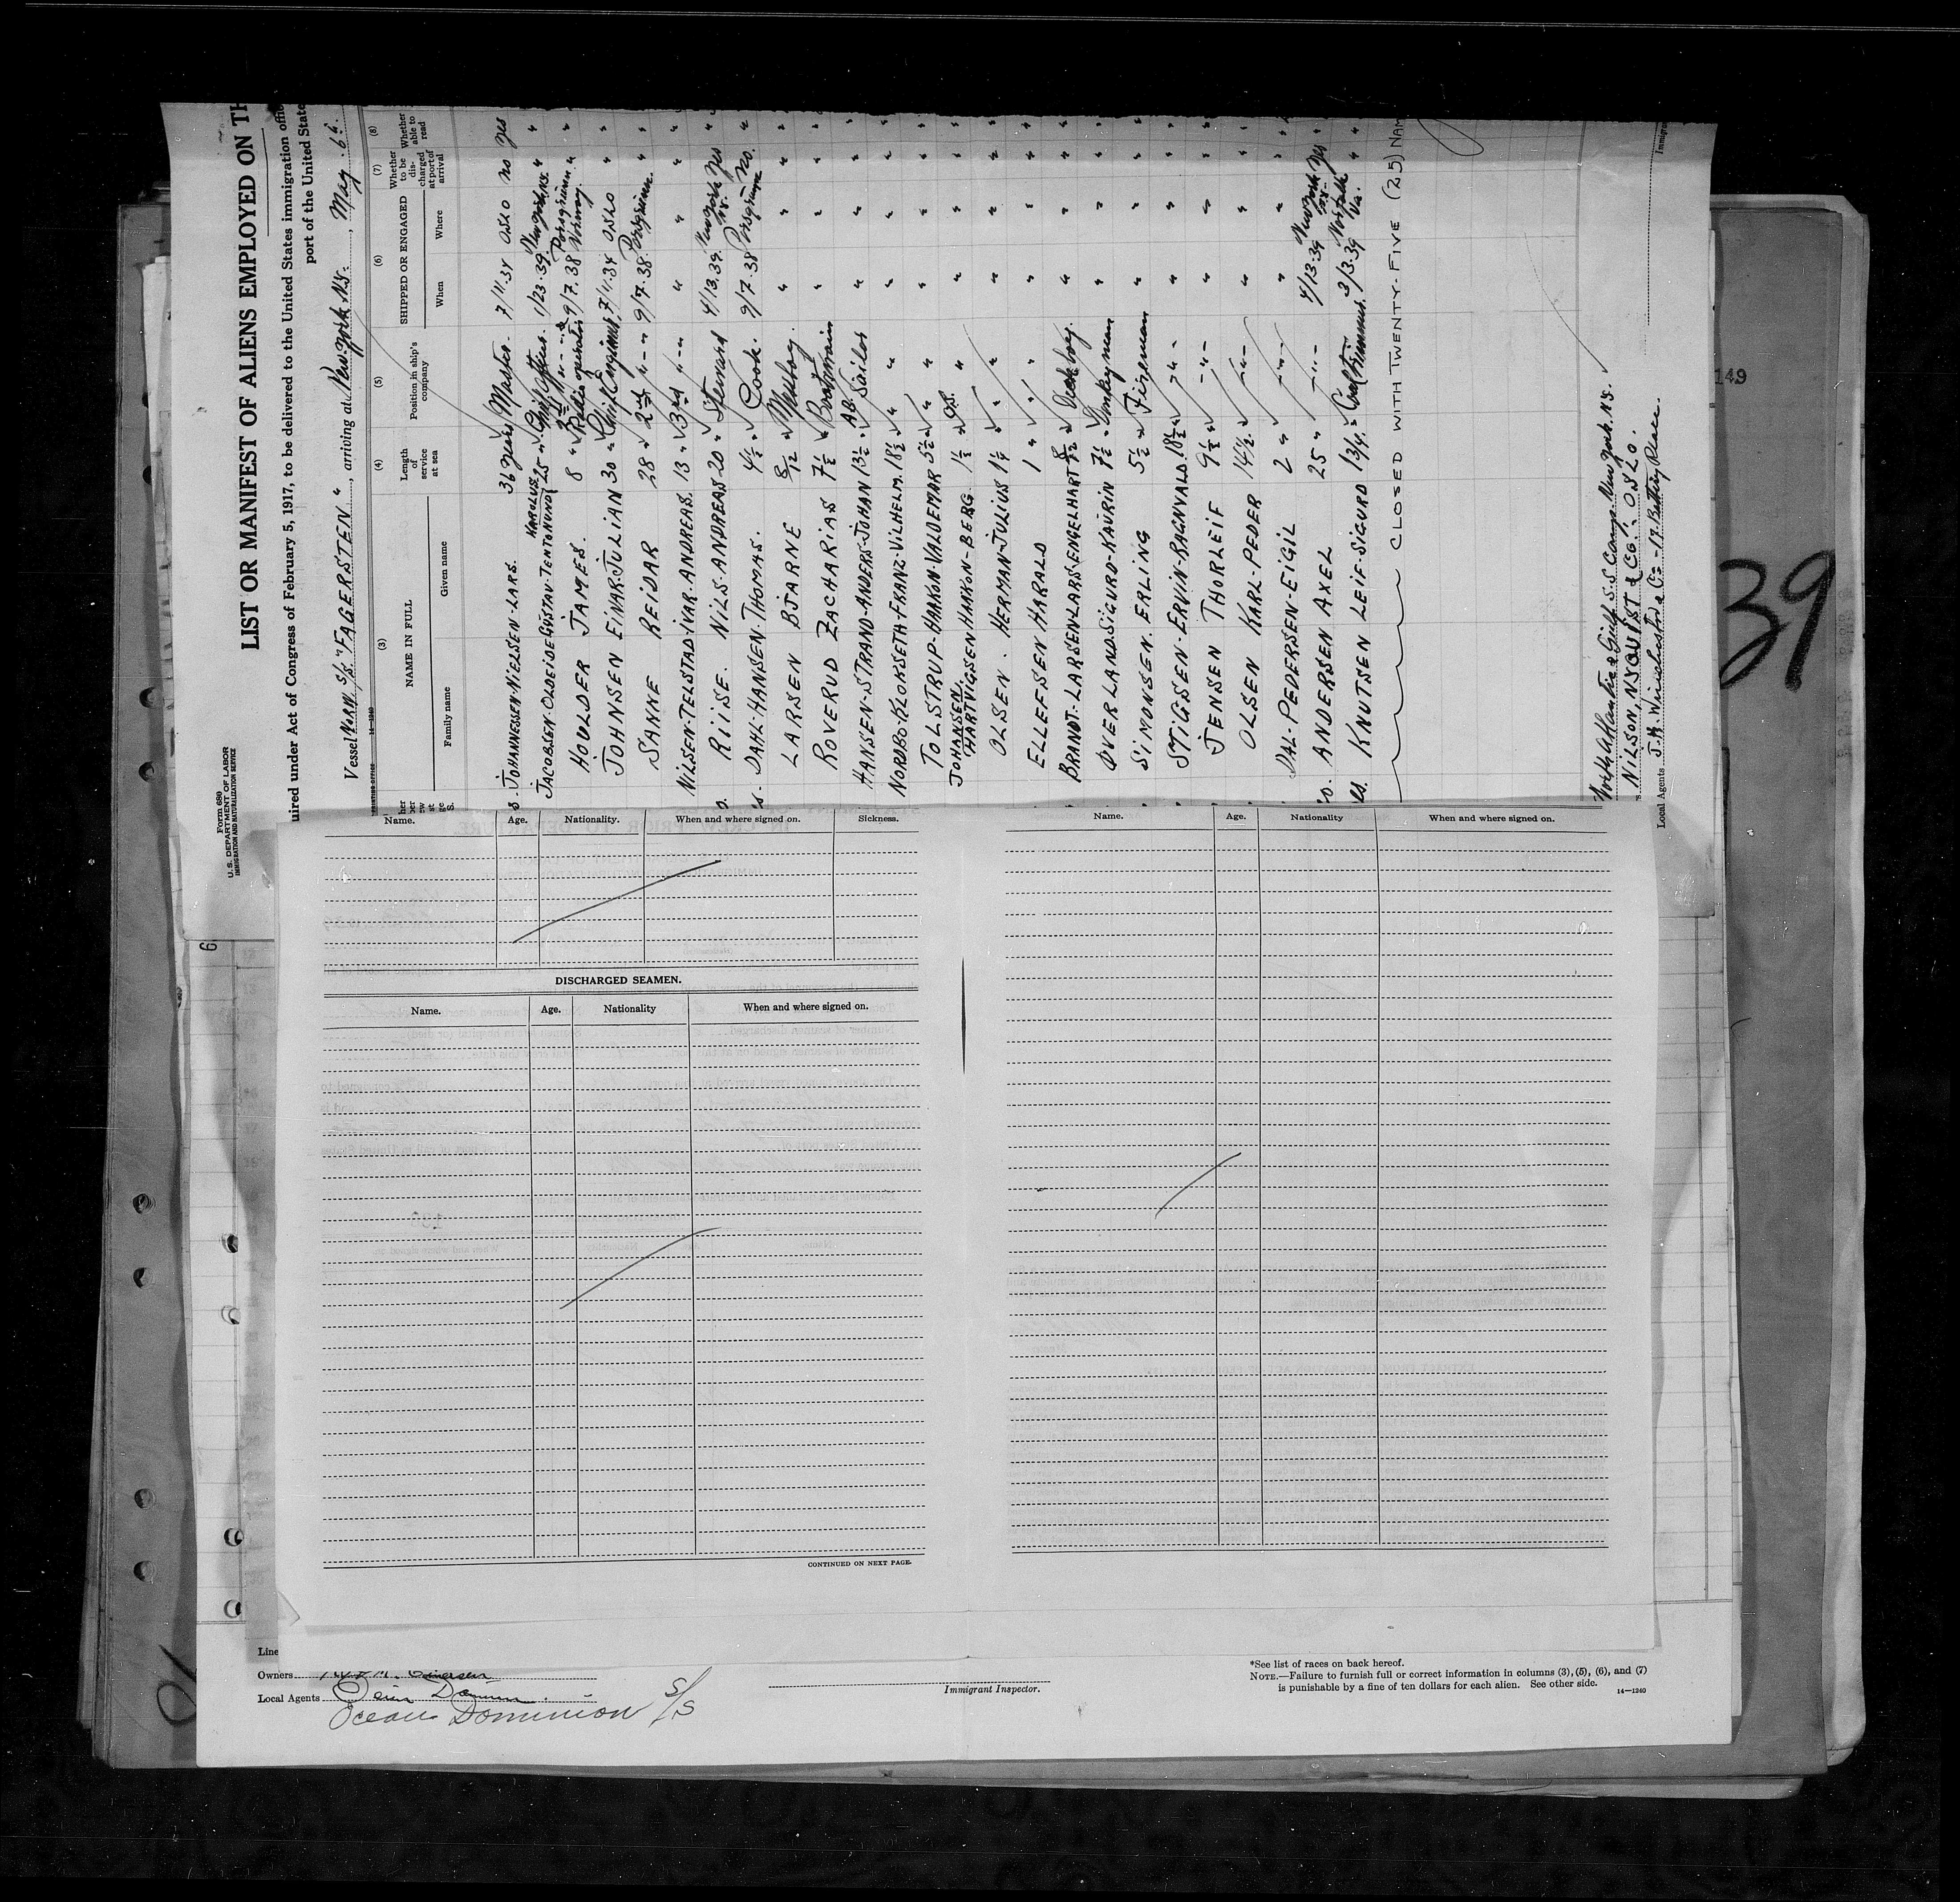 Form 680
U.S. DEPARTMENT OF LABOR
IMMIGRATION AND NATURALIZATION SERVICE
LIST OR MANIFEST OF ALIENS EMPLOYED ON TH
uired under Act of Congress of February 5, 1917, to be delivered to the United States immigration offi
port of the United State
Vessel NORW. S/S. "FAGERSTEN", arriving at New York NY., May 6th
14—1240
(3) (4) (5) (6) (7) (8)
NAME IN FULL
Family name Given name
Length of service at sea
Position in ship's company
SHIPPED OR ENGAGED
When Where
Whether to be discharged at port of arrival
Whether able to read
JOHANNESSEN-NIELSEN-LARS. 36 years Master. 7/11.34 OSLO no yes
JACOBSEN-OLDEIDE GUSTAV-TENTONUND KAROLUS 25 " 1/23.39. New York "
HOULDER JAMES. 8 " Radio operator 9/7.38 Porsgrunn Norway. "
JOHNSEN EINAR-JULIAN 30 " Chief Engineer, 7/11.34 OSLO "
SANNE REIDAR 28 " 2nd " - " 9/7.38. Porsgrunn. "
NILSEN-TELSTAD-IVAR-ANDREAS. 13 " 3rd " - " " " "
RIISE. NILS-ANDREAS 20 " Steward 4/13.39. New York NY. yes "
DAHL-HANSEN-THOMAS. 4½ " Cook. 9/7.38 Porsgrunn No. "
LARSEN BJARNE 8/12 " Messboy. " " " "
ROVERUD ZACHARIAS 7½ " Boatswain " " " "
HANSEN-STRAND-ANDERS-JOHAN 13½ " AB. Sailor " " " "
NORDBO-KLOKSETH-FRANZ-VILHELM. 18½ " " " " " "
TOLSTRUP-HAAKON-VALDEMAR 5½ " " " " " "
JOHANSEN.
HARTVIGSEN HAAKON-BERG. 1½ " O.S. " " " " "
OLSEN. HERMAN-JULIUS 1¼ " " " " " "
ELLEFSEN HARALD 1 " " " " " "
BRANDT-LARSEN-LARS-ENGELHART 8/12 " Deckboy. " " " "
ØVERLAND. SIGURD-KAURIN 7½ " Donkeyman " " " "
SIMONSEN. ERLING 5½ " Fireman " " " "
STIGSEN-ERVIN-RAGNVALD. 18½ " " - " " " "
JENSEN THORLEIF 9½ " - " - " " " "
OLSEN KARL-PEDER 14½ " - " - " " " "
DAL-PEDERSEN-EIGIL 2 " - " - " " " "
ANDERSEN AXEL 25 " - " - 4/13.39 New York NY. yes "
KNUTSEN LEIF-SIGURD 13/4 " Coal trimmer. 3/3.39 Norfolk Va. " "
CLOSED WITH TWENTY-FIVE (25) NAM
North Atlantic & Gulf S.S. Comp. New York. NY.
NILSON, NYQUIST & CO: OSLO.
Local Agents J.H. Winchester & Co – 19 Battery Place.
Immigra
149
39
Name. Age. Nationality. When and where signed on. Sickness.
DISCHARGED SEAMEN.
Name. Age. Nationality When and where signed on.
CONTINUED ON NEXT PAGE.
Name. Age. Nationality When and where signed on.
Line
Owners
Local Agents
Ocean Dominion S/S
Immigrant Inspector.
*See list of races on back hereof.
NOTE.—Failure to furnish full or correct information in columns (3), (5), (6), and (7)
is punishable by a fine of ten dollars for each alien. See other side.
14—1240